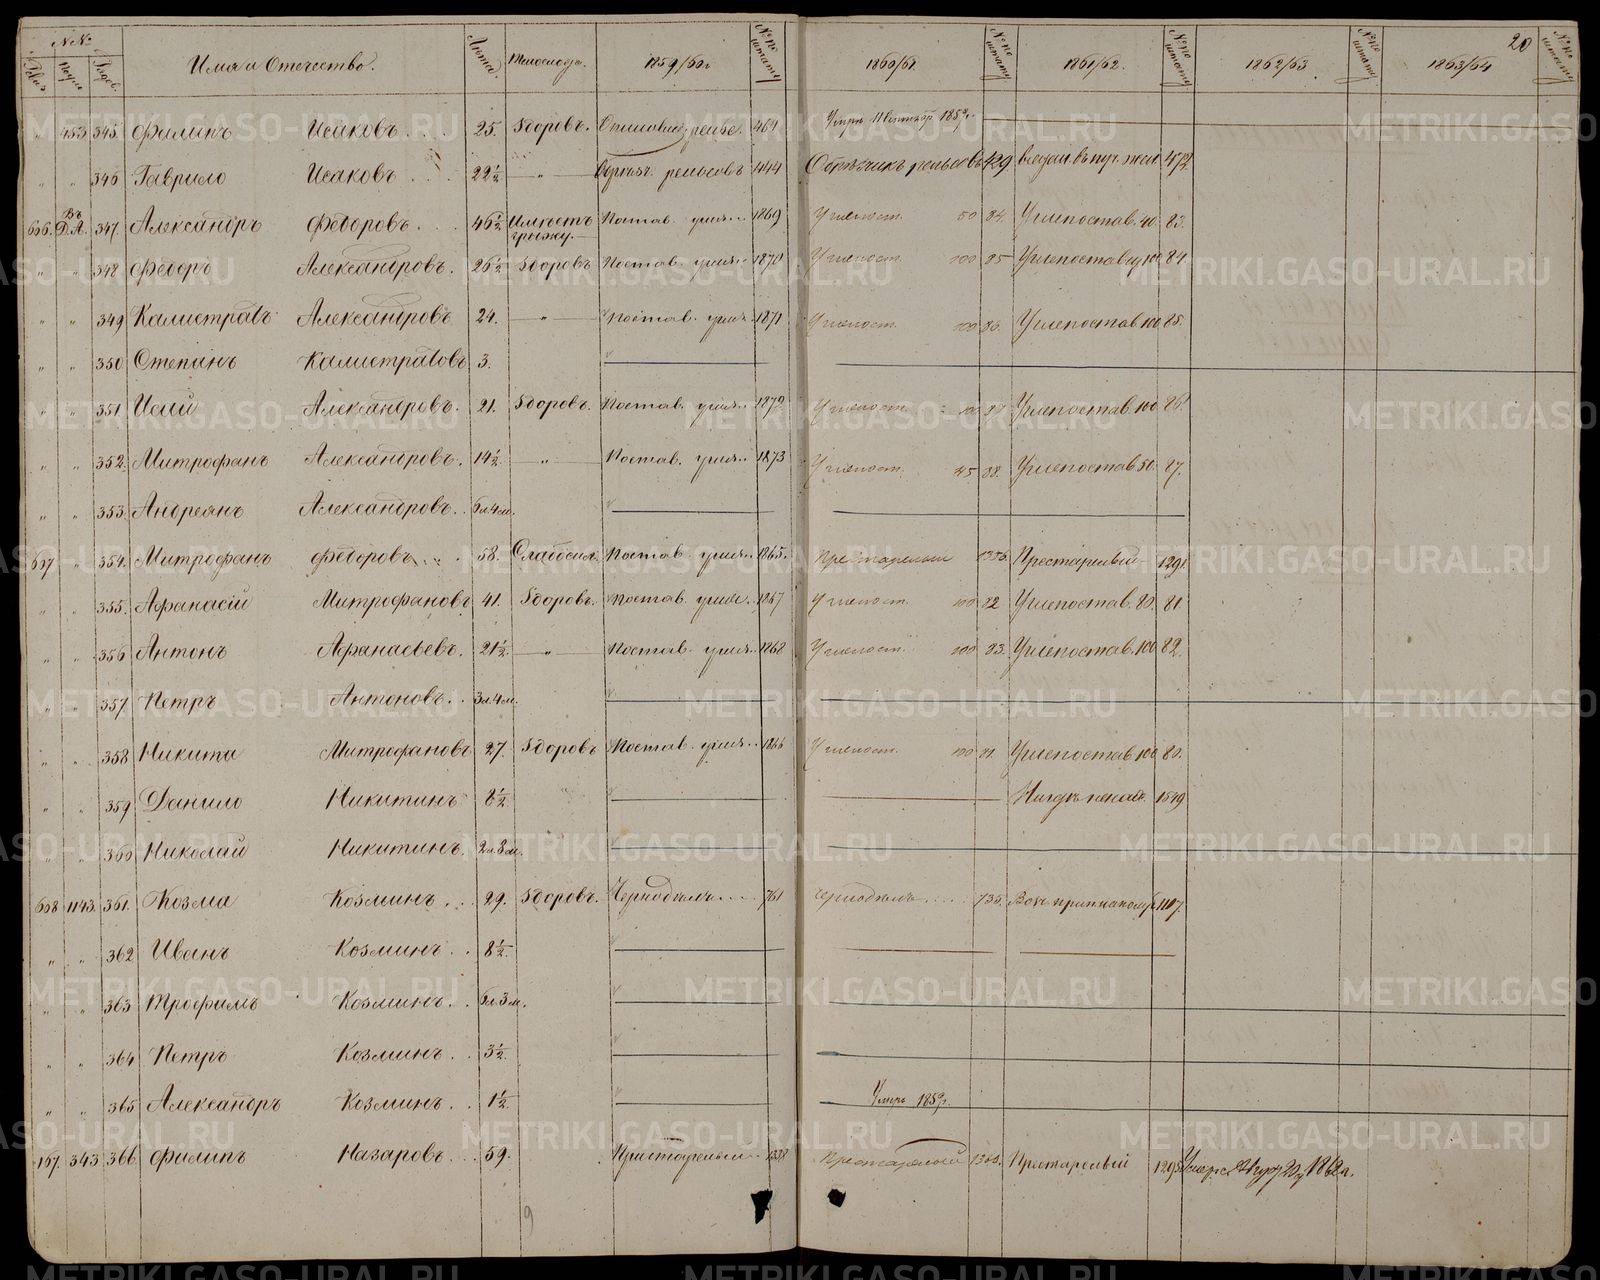 №№
Имя и Отчество. Лѣта. Телослож. 1859/60г № по штату 1860/61 № по штату 1861/62. № по штату 1862/63 № по штату 1863/64 № по штату
20
" 453 345. Филипъ Исаковъ 25. Здоровъ. 464 1859г.
" " 346 Гаврило Исаковъ 22½ " рельсовъ 1444 Обрѣзчикъ рельсовъ 429.
656. Въ Д.А. 347. Александръ Федоровъ 46½ Имѣетъ грыжу. Постав. угля 1869 Углепост. 50 84. Углепостав. 40 83.
" " 348 Федоръ Александровъ. 26½ Здоровъ Постав. угля 1870 Углепост. 100 85 Углепостав. 100 84.
" " 349 Калистратъ Александровъ 24. " Постав. угля 1871 Углепост. 100 86. Углепостав. 100 85.
" " 350 Степанъ Калистратовъ 3.
" " 351 Исай Александровъ. 21. Здоровъ. Постав. угля 1872 Углепост. 100 87 Углепостав. 100 86.
" " 352. Митрофанъ Александровъ. 14½ " Постав. угля 1873 Углепост. 45 88. Углепостав. 50. 87.
" " 353. Андреянъ Александровъ. 6л4м.
657 " 354. Митрофанъ Федоровъ 58. Слабосил. Постав. угля 1865. Престарелый 1356. Престарелый 1291.
" " 355. Афанасій Митрофановъ 41. Здоровъ. Постав. угля 1867 Углепост. 100 82 Углепостав. 80. 81.
" " 356 Антонъ Афанасьевъ. 21½ " Постав. угля 1868 Углепост. 100 83. Углепостав. 100 82.
" " 357. Петръ Антоновъ. 3л4м.
" " 358 Никита Митрофановъ 27. Здоровъ Постав. угля 1866 Углепост. 100 81. Углепостав. 100 80.
" " 359 Данило Никитинъ 8½ 1549
" " 360 Николай Никитинъ. 2л.8м.
658 1143. 361. Козма Козминъ. 29. Здоровъ. Чернодѣлъ 761 Чернодѣлъ 735. 1107.
" " 362 Иванъ Козминъ. 8½
" " 363 Трофимъ Козминъ. 6л3м.
" " 364 Петръ Козминъ. 3½
" " 365 Александръ Козминъ. 1½ Умеръ 1859г.
167. 343 366. Филипъ Назаровъ. 59. Пристарелый 1338 Престарелый Престарелый 1295 1862г.
9
METRIKI.GASO-URAL.RU